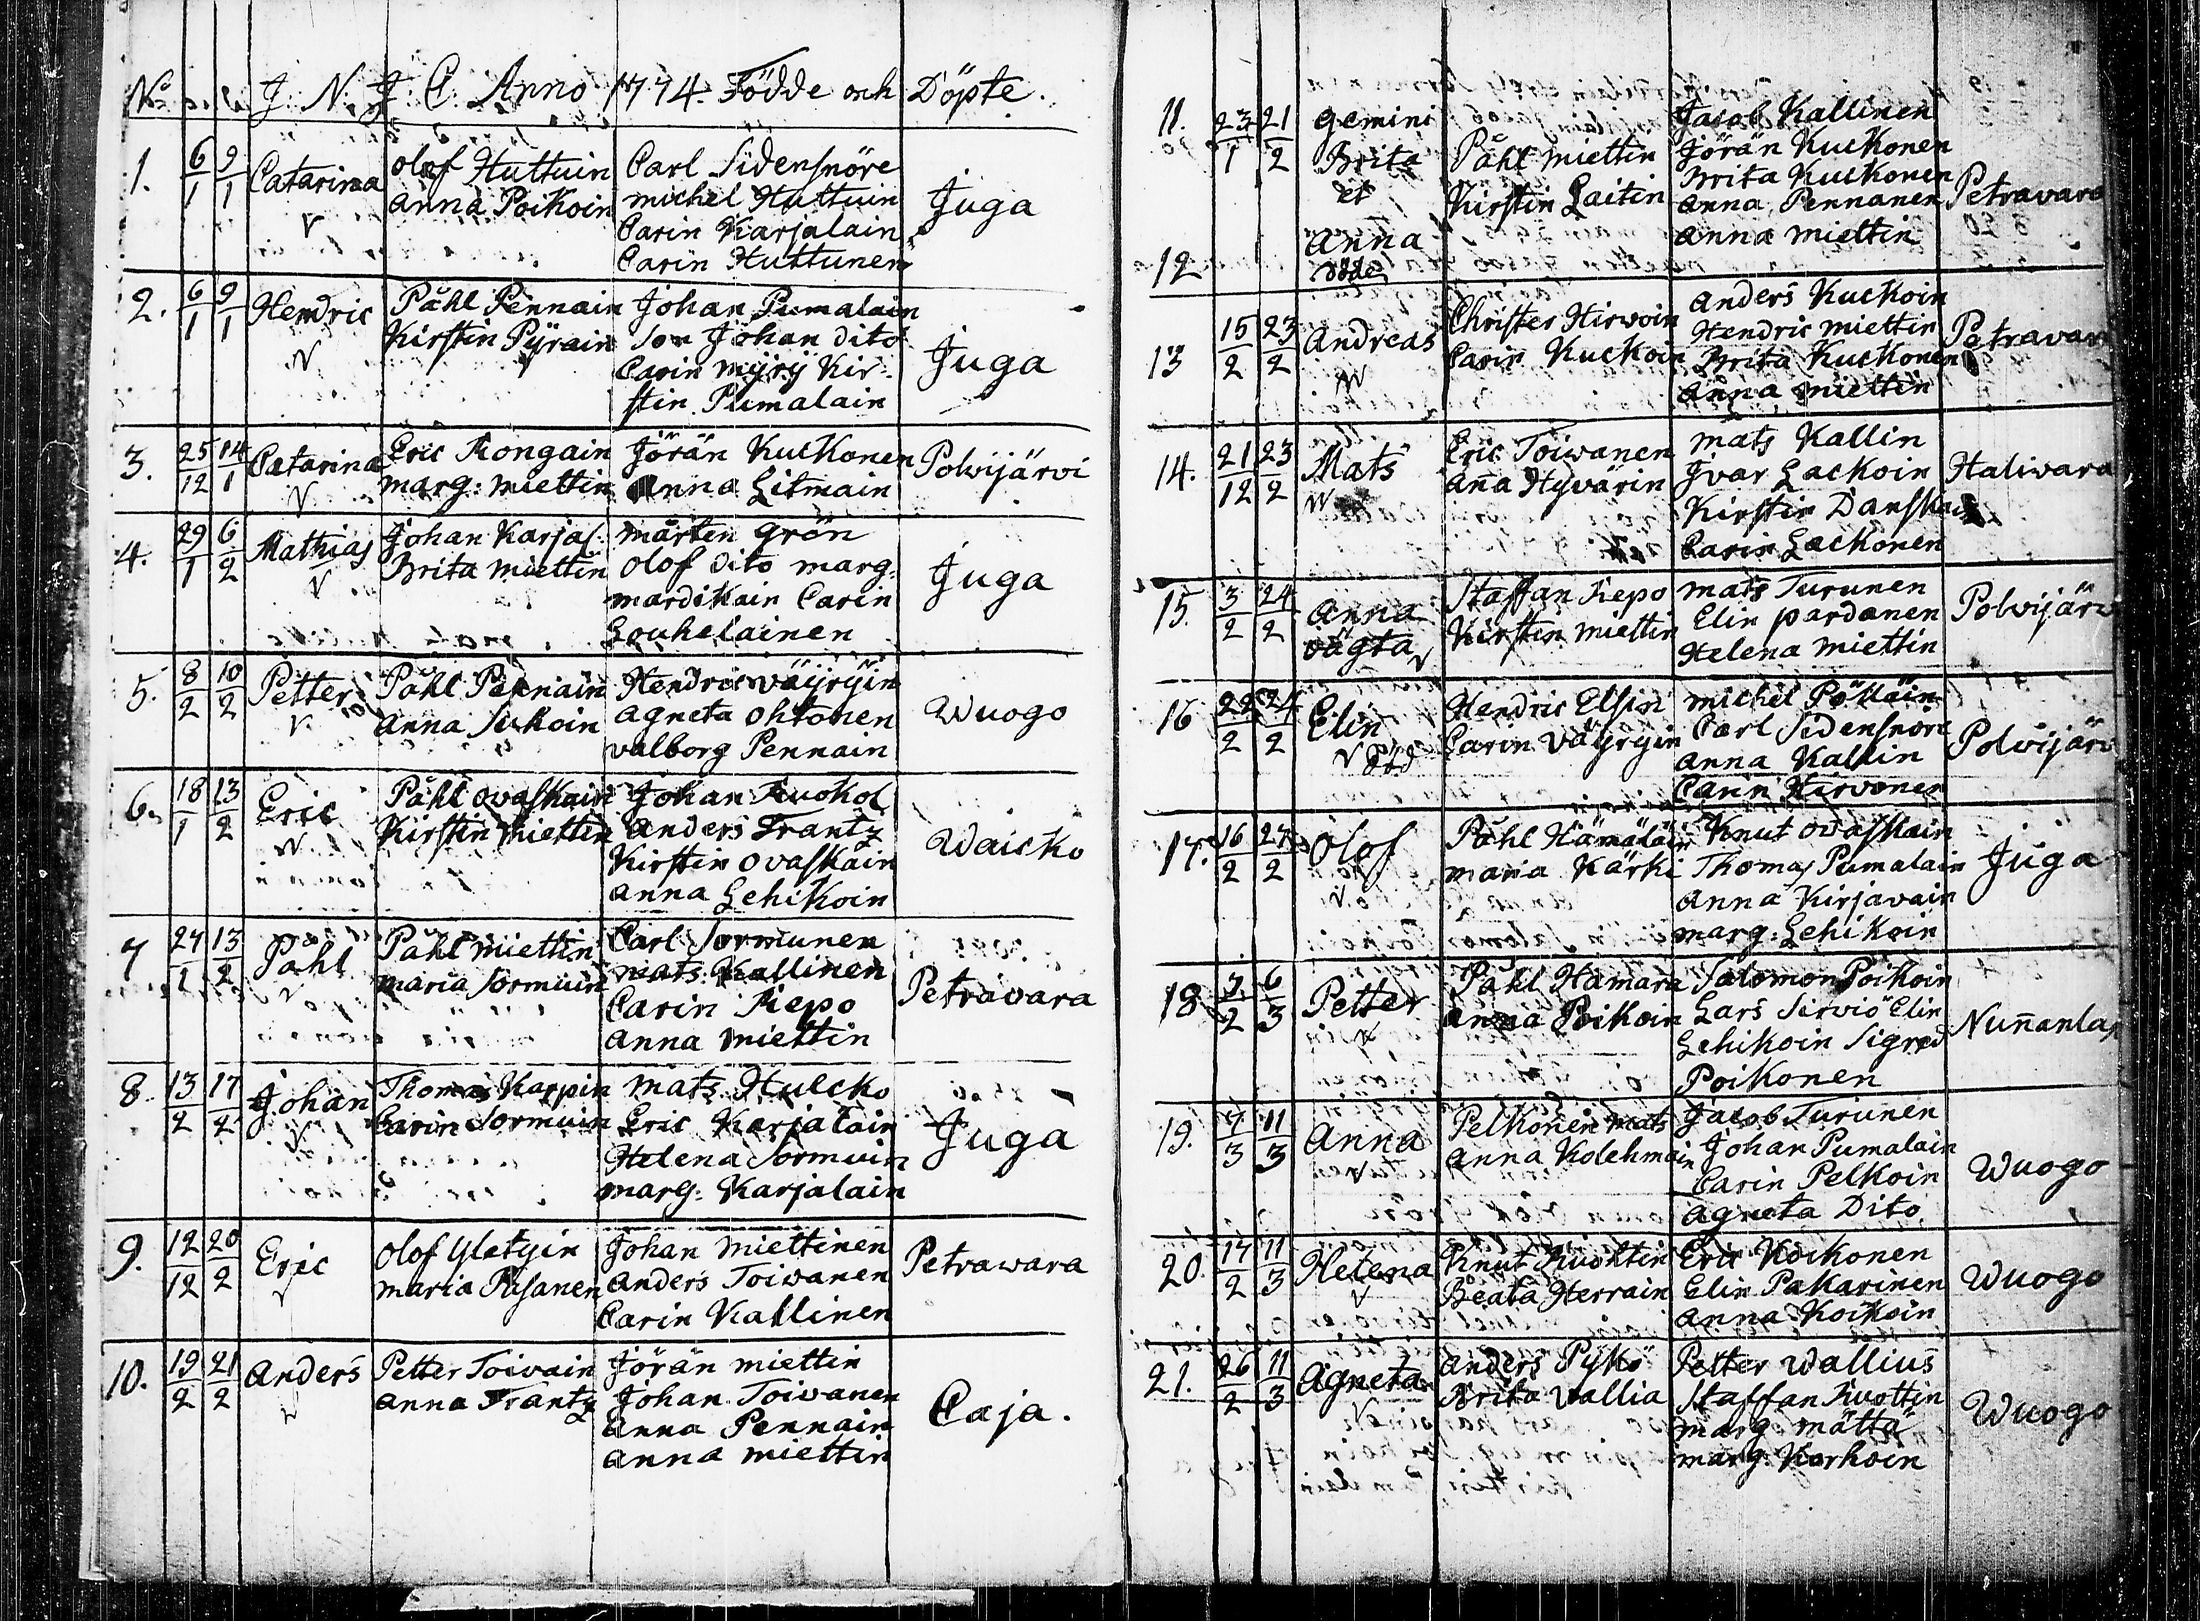 No J. N. J. C. Anno 1774. Födde och Döpte.
1. 6/1 9/1 Catarina Olof Huttuin Carl Sidensnöre Juga
Anna Poikoin Michel Huttuin
Carin Karjalain
Carin Huttunen
2. 6/1 9/1 Hendric Påhl Pennain Johan Pumalain Juga
Kirstin Pyrain Son Johan dito
Carin Myry Kir-
stin Pumalain
3. 25/12 14/1 Catarina Eric Rongain Jörän Kuckonen Polvijärvi
Marg: Miettin Anna Litmain
4. 29/1 6/2 Mathias Johan Karjal: Mårten Grön Juga
Brita Miettin Olof dito Marg:
Mardikain Carin
Louhelainen
5. 8/2 10/2 Petter Påhl Pennain Hendric Väyryin Wuogo
Anna Sukoin Agneta Ohtonen
Valborg Pennain
6. 18/1 13/2 Eric Påhl Ovaskain Johan Ruokol Waisko
Kirstin Miettin Anders Frantz
Kirstin Ovaskain
Anna Lehikoin
7 27/1 13/2 Påhl Påhl Miettin Carl Sormunen Petravara
Maria Sormuin Mats Kallinen
Carin Repo
Anna Miettin
8. 13/2 17/2 Johan Thomas Karpin Mats Hulcko Juga
Carin Sormuin Eric Karjalain
Helena Sormuin
Marg: Karjalain
9. 12/12 20/2 Eric Olof Yletyin Johan Miettinen Petrawara
Maria Pisanen Anders Toiwanen
Carin Kallinen
10. 19/2 21/2 Anders Petter Toivain Jörän Miettin Caja.
Anna Frantz Johan Toiwanen
Anna Pennain
Anna Miettin
11. 23/1 21/2 Gemini Jacob Kallinen
Brita Påhl Miettin Jörän Kuckonen
et Kirstin Laitin Brita Kuckonen Petravara
Anna Pennanen
12 Anna Anna Miettin
döde
13 15/2 23/2 Andreas Christer Hirwoin Anders Kuckoin Petravar
Carin Kuckoin Hendric Miettin
Brita Kuckonen
Anna Miettin
14. 21/12 23/2 Mats Eric Toiwanen Mats Kallin Haliwara
Aña Hyvärin Ivar Lackoin
Kirstin Danska
Carin Lackonen
15. 3/2 24/2 Anna Staffan Repo Mats Turunen Polvijärv
oägta Kirstin Miettin Elin Pardanen
Helena Miettin
16 22/2 24/2 Elin Hendric Elsin Michel Pölläin Polvijärv
död Carin Väyryin Carl Sidensnöre
Anna Kallin
Carin Hirvonen
17. 16/2 27/2 Olof Påhl Hämäläin Knut Ovaskain Juga
Maria Kärki Thomas Pumalain
Anna Kirjavain
Marg: Lehikoin
18 7/2 6/3 Petter Påhl Hamara Salomon Poikoin Nuñanlax
Anna Poikoin Lars Sirviö Elin
Lehikoin Sigred
Poikonen
19. 7/3 11/3 Anna Pelkonen Mats Jacob Turunen Wuogo
Anna Kolehmain Johan Pumalain
Carin Pelkoin
Agneta Dito
20. 17/2 11/3 Helena Knut Ruohtin Eric Koikonen Wuogo
Beata Herrain Elin Pakarinen
Anna Koikoin
21. 26/2 11/3 Agneta Anders Pykö Petter Wallius Wuogo
Brita Vallia Staffan Ruottin
Marg Mättä
Marg: Korhoin